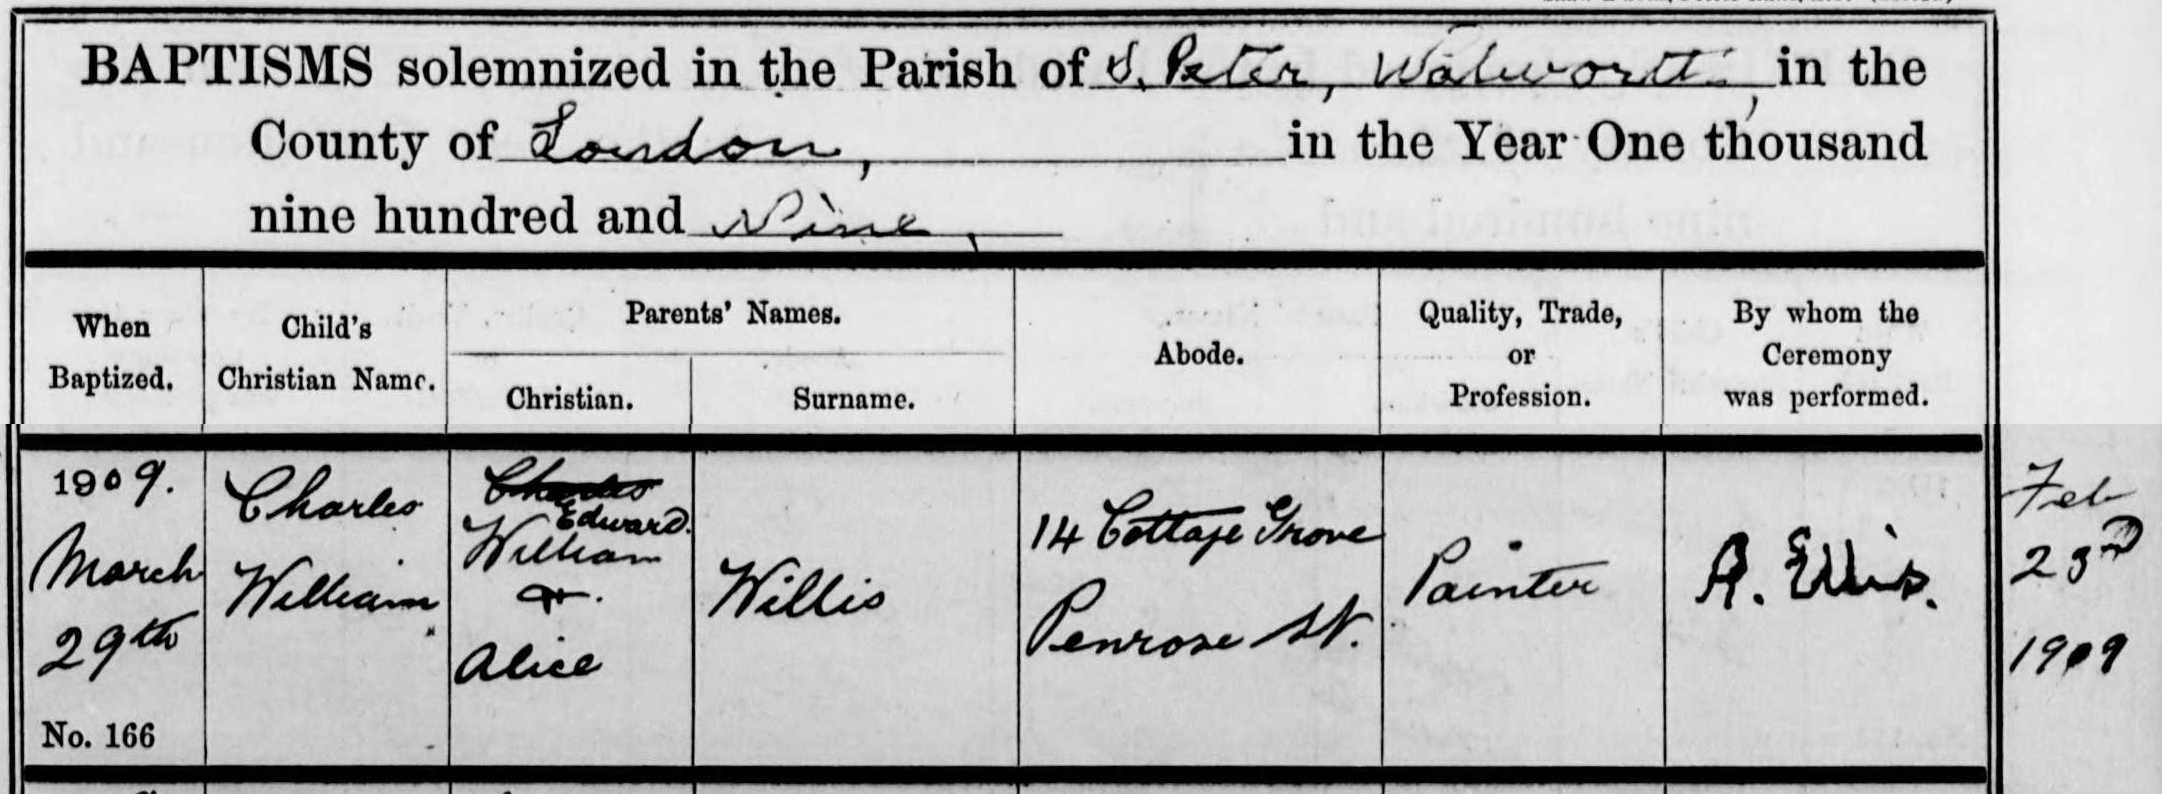 BAPTISMS solemnized in the Parish of S. Peter, Walworth, in the
County of London, in the Year One thousand
nine hundred and Nine,
When Baptized.
Child's Christian Name.
Parents' Names.
Christian.
Surname.
Abode.
Quality, Trade, or Profession.
By whom the Ceremony was performed.
1909.
March
29th
No. 166
Charles
William
Charles
Edward.
William
&
Alice
Willis
14 Cottage Grove
Penrose St.
Painter
A. Ellis.
Feb
23rd
1909